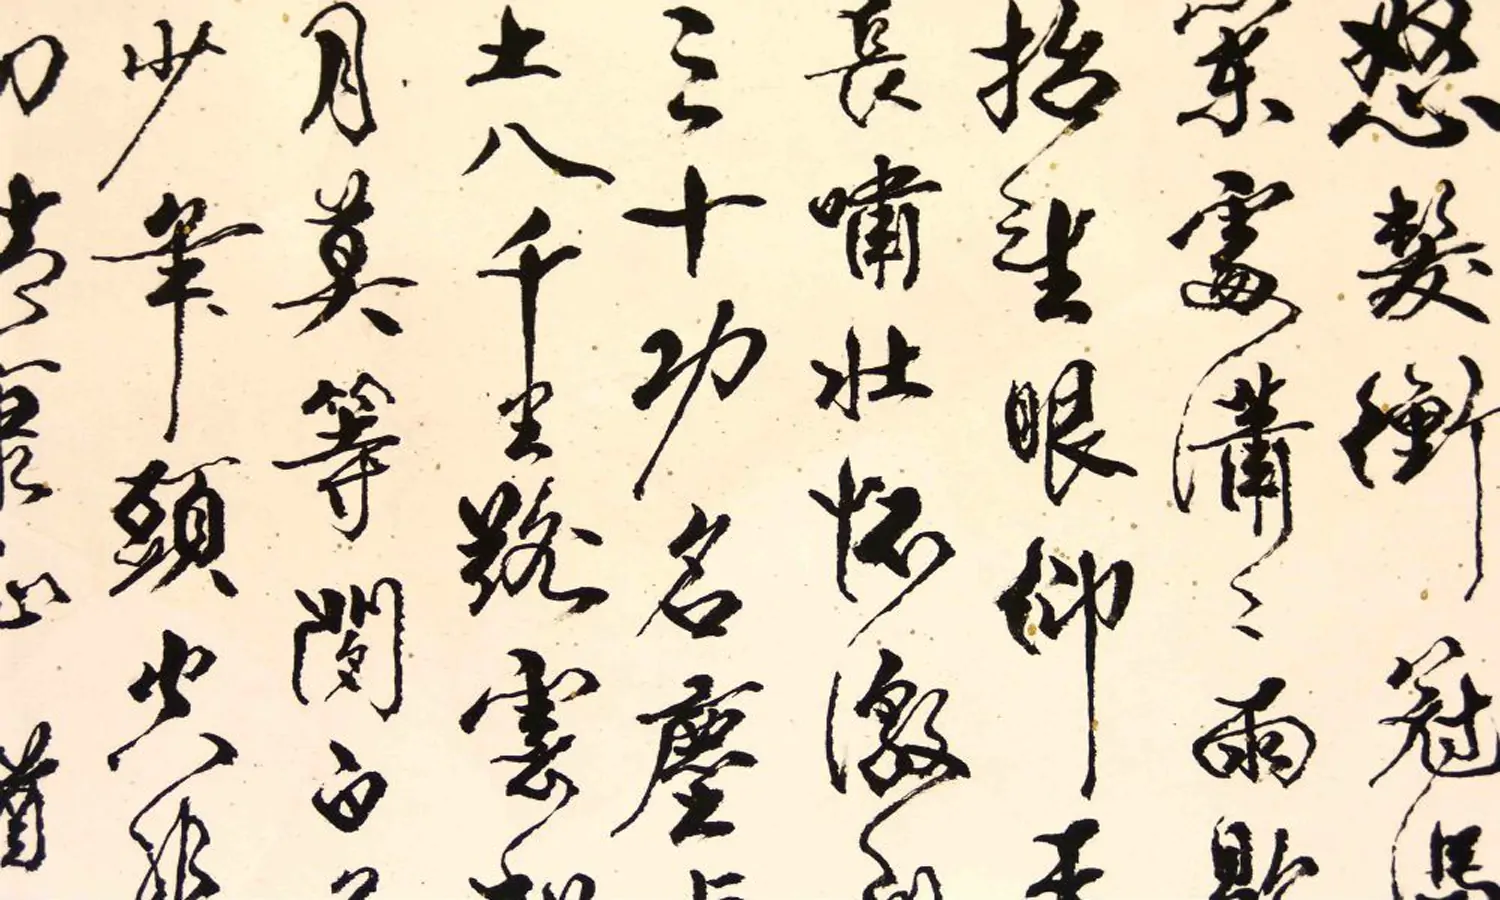 怒髮衝冠憑
闌處瀟〻雨歇
抬望眼仰天
長嘯壯懷激烈
三十功名塵與
土八千里路雲和
月莫等閒白了
少年頭空悲
切靖康恥猶